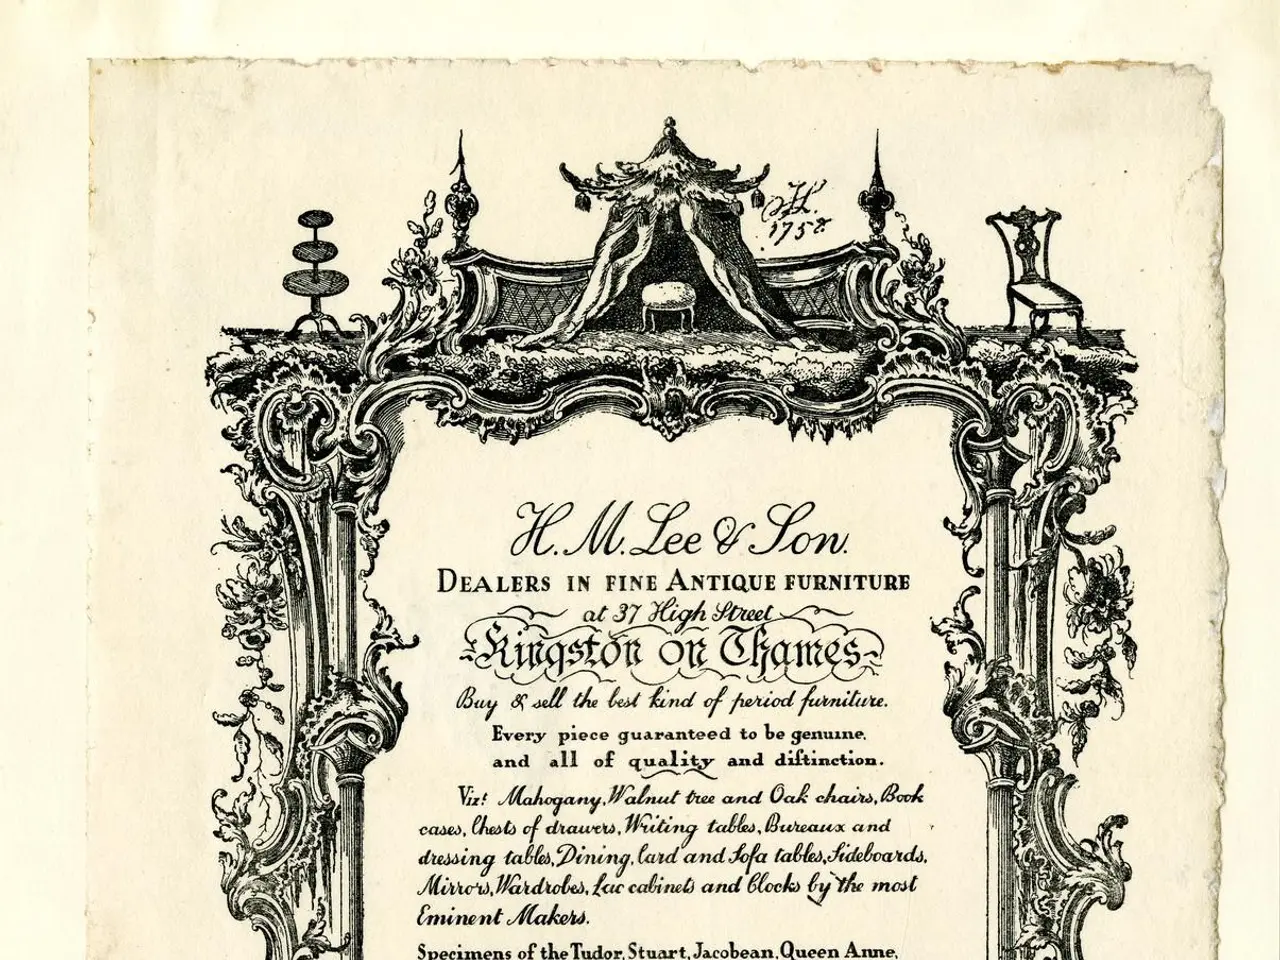 H.
1758
H. M. Lee & Son.
DEALERS IN FINE ANTIQUE FURNITURE
at 37 High Street
Kingston on Thames
Buy & sell the best kind of period furniture.
Every piece guaranteed to be genuine,
and all of quality and diſtinction.
Vizt Mahogany, Walnut tree and Oak chairs, Book
cases, Chests of drawers, Writing tables, Bureaux and
dressing tables, Dining, Card and Sofa tables, Sideboards,
Mirrors, Wardrobes, Lac cabinets and Clocks by the most
Eminent Makers.
Specimens of the Tudor, Stuart, Jacobean, Queen Anne,